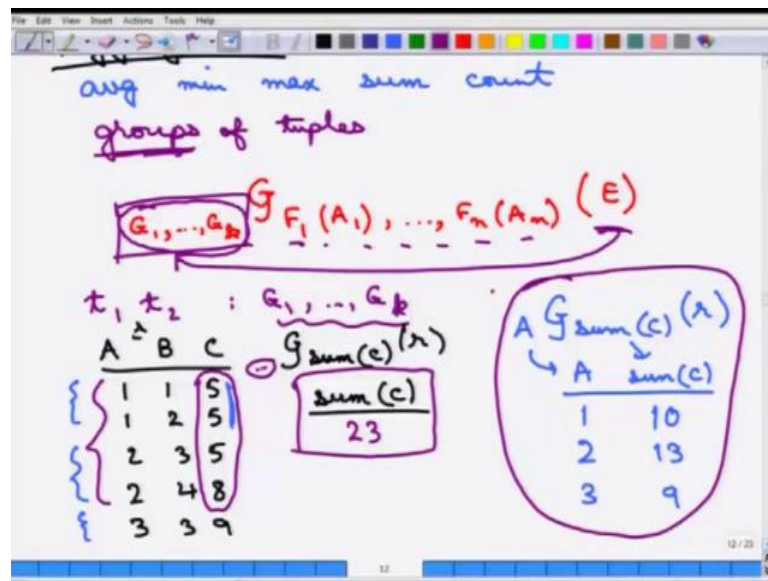 File Edit View Insert Actions Tools Help
avg min max sum count
groups of tuples
G₁, ..., Gₖ 𝒢 F₁(A₁), ..., Fₙ(Aₙ) (E)
t₁ t₂ : G₁, ..., Gₖ
r
A B C
1 1 5
1 2 5
2 3 5
2 4 8
3 3 9
𝒢 sum(c) (r)
sum(c)
23
A 𝒢 sum(c) (r)
A sum(c)
1 10
2 13
3 9
12/23
12